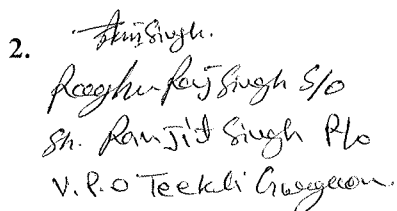 2.
Singh.
Raghu Raj Singh S/o
Sh. Ranjit Singh R/o
V.P.O Teekli Gurgaon.